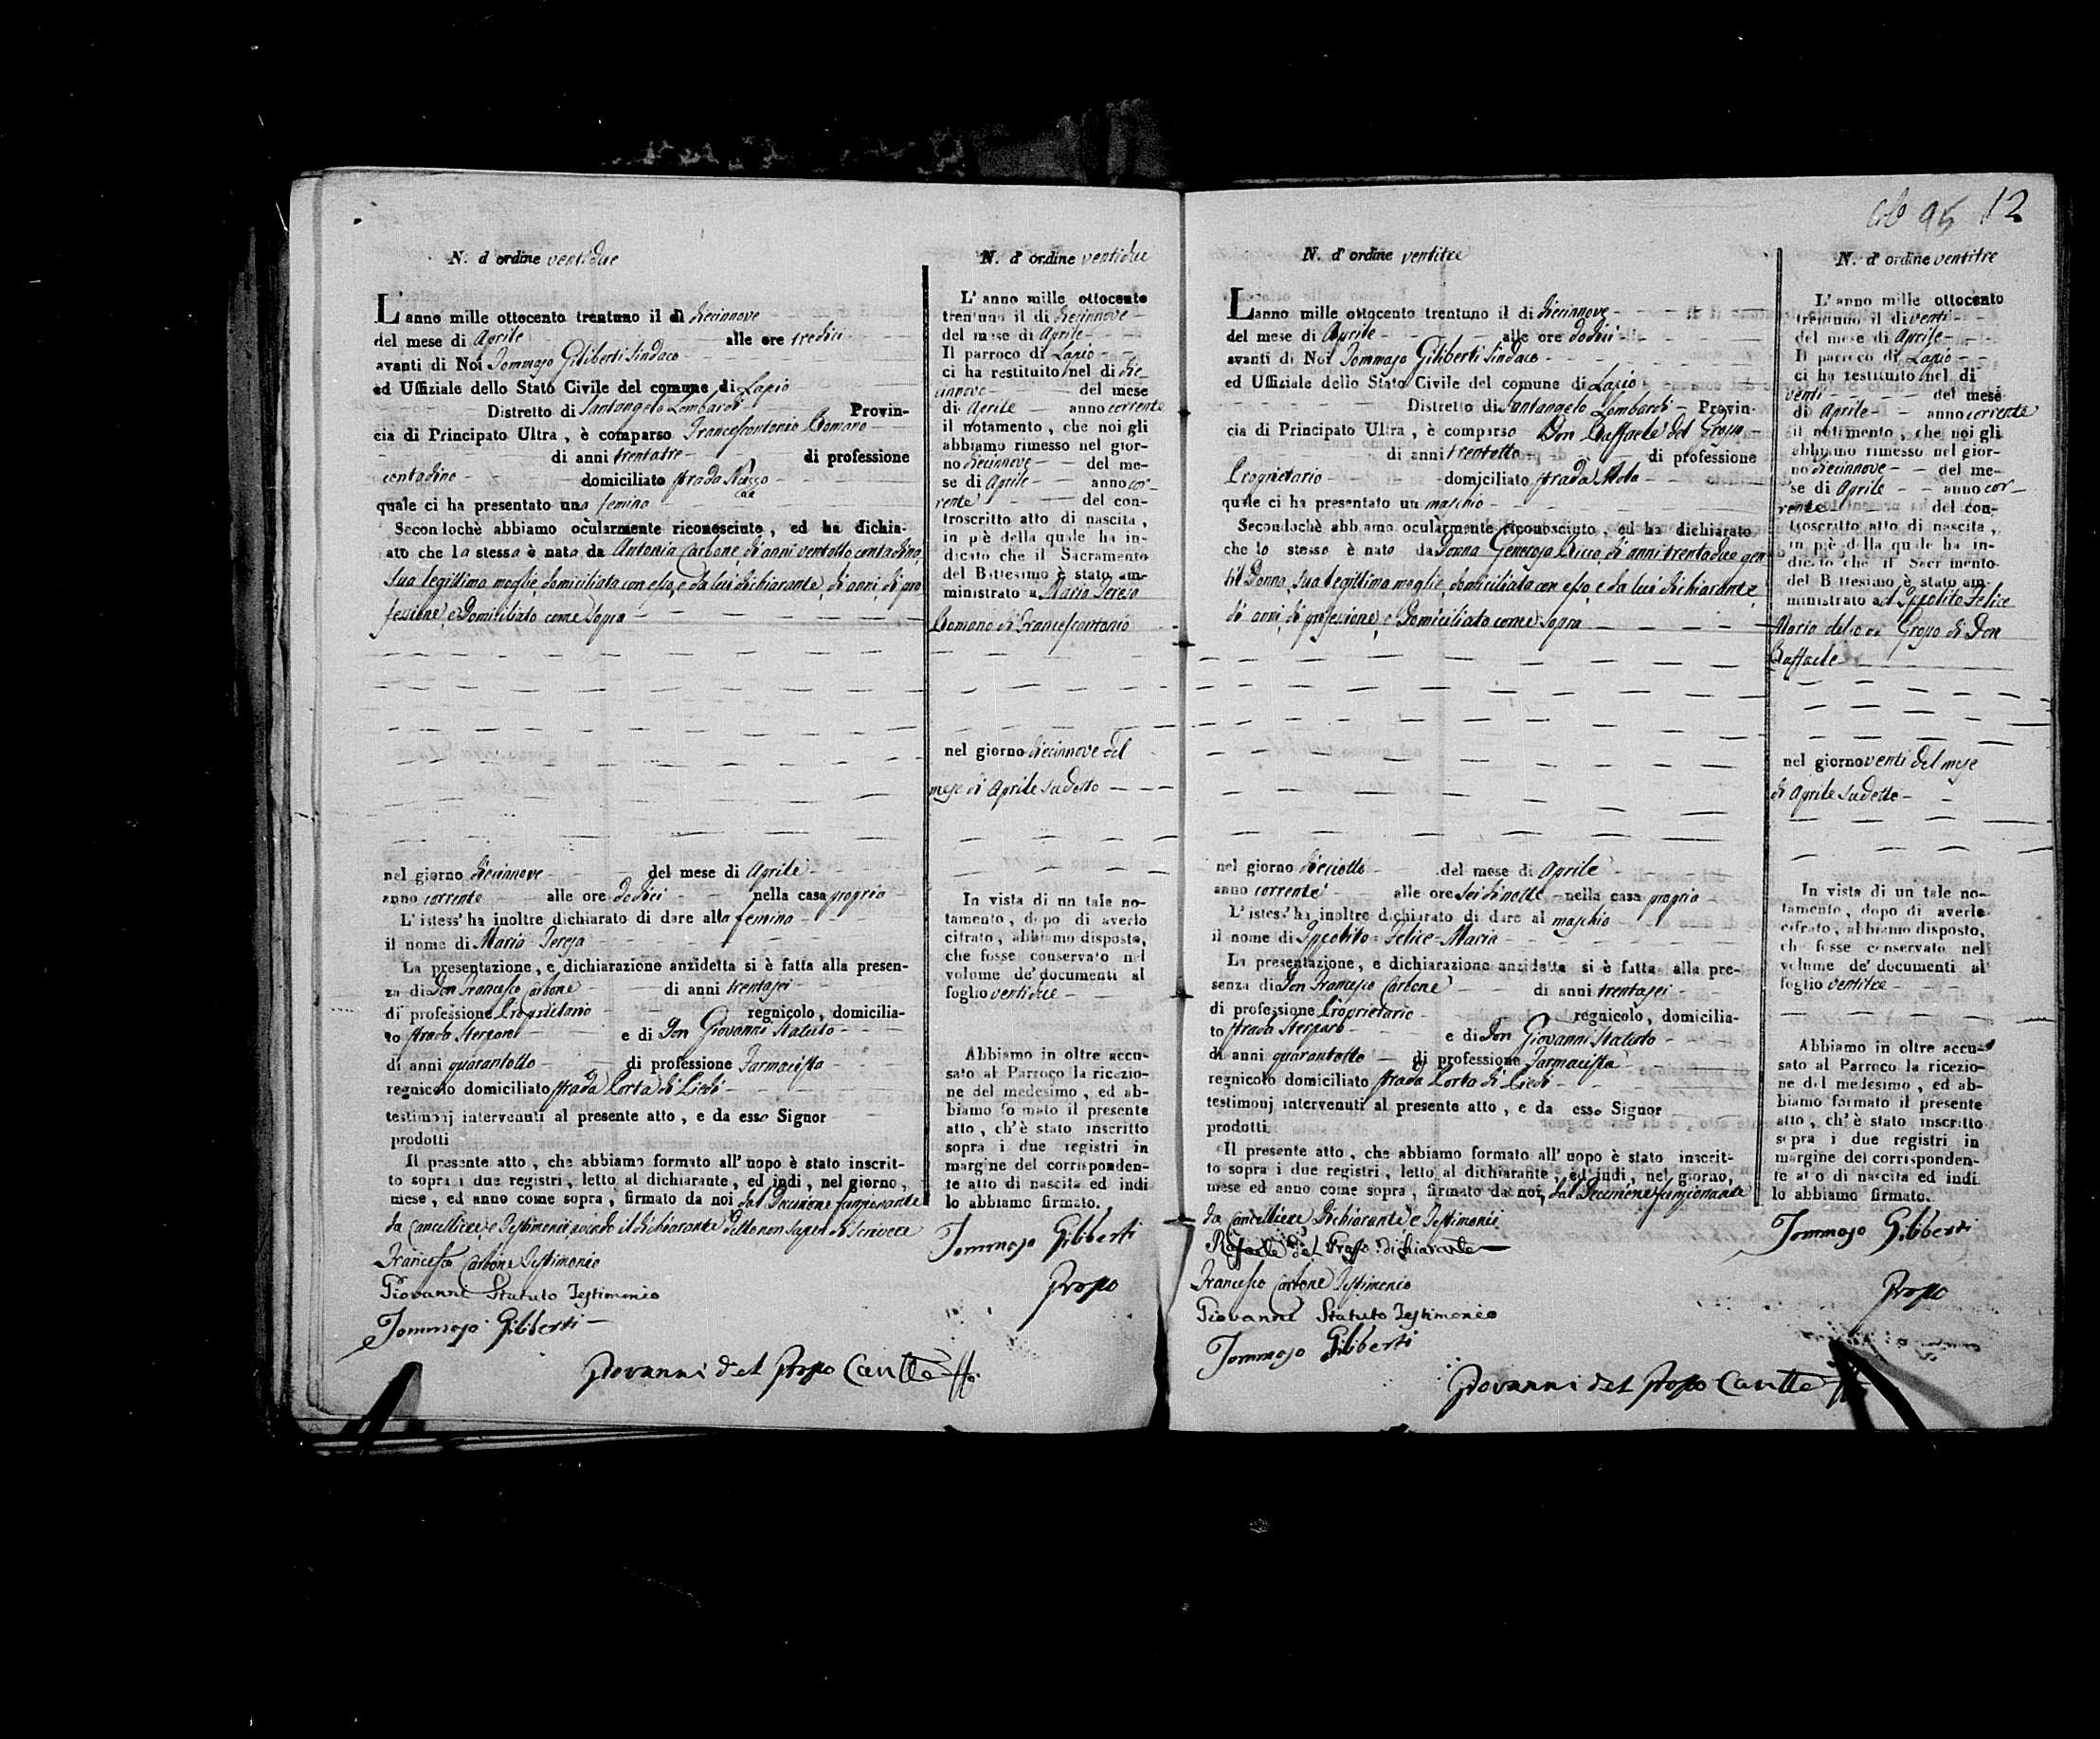 N. d'ordine ventidue
L'anno mille ottocento trentuno il dì diecinnove
del mese di Aprile alle ore tredici
avanti di Noi Tommaso Giliberti Sindaco
ed Uffiziale dello Stato Civile del comune di Lapio
Distretto di Santangelo Lombardi Provin-
cia di Principato Ultra, è comparso Francescantonio Romano
di anni trentatre di professione
contadino domiciliato strada
quale ci ha presentato una femina
Secondochè abbiamo ocularmente riconosciuto, ed ha dichia-
ato che la stessa è nata da Antonia Carbone di anni ventotto contadina,
sua legittima moglie, domiciliata con esso, e da lui dichiarante, di anni, di pro
fessione, e Domiciliato come sopra
nel giorno diecinnove del mese di Aprile
anno corrente alle ore dodici nella casa propria
L'istess' ha inoltre dichiarato di dare alla femina
il nome di Maria Teresa
La presentazione, e dichiarazione anzidetta si è fatta alla presen-
za di Don Francesco Carbone di anni trentasei
di professione Proprietario regnicolo, domicilia-
to strada e di Don Giovanni Statuto
di anni quarantotto di professione Farmacista
regnicolo domiciliato strada Porta di Piedi
testimonj intervenuti al presente atto, e da esso Signor
prodotti
Il presente atto, che abbiamo formato all'uopo è stato inscrit-
to sopra i due registri, letto al dichiarante, ed indi, nel giorno,
mese, ed anno come sopra, firmato da noi dal Decurione funzionante
da Cancelliere, e Testimonii avendo il dichiarante detto non saper di scrivere
Francesco Carbone Testimonio
Giovanni Statuto Testimonio
Tommaso Giliberti
Giovanni del Grosso
N. d'ordine ventidue
L'anno mille ottocento
trentuno il dì diecinnove
del mese di Aprile
Il parroco di Lapio
ci ha restituito nel dì die-
cinnove del mese
di Aprile anno corrente
il notamento, che noi gli
abbiamo rimesso nel gior-
no diecinnove del me-
se di Aprile anno cor-
rente del con-
troscritto atto di nascita,
in piè della quale ha in-
dicato che il Sacramento
del Battesimo è stato am-
ministrato a Maria Teresa
Romano di Francescantonio
nel giorno diecinnove del
mese di Aprile sudetto
In vista di un tale no-
tamento, dopo di averlo
cifrato, abbiamo disposto,
che fosse conservato nel
volume de' documenti al
foglio ventidue
Abbiamo in oltre accu-
sato al Parroco la ricezio-
ne del medesimo, ed ab-
biamo formato il presente
atto, ch'è stato inscritto
sopra i due registri in
margine del corrisponden-
te atto di nascita ed indi
lo abbiamo firmato.
Tommaso Giliberti
Grosso
95 12
N. d'ordine ventitre
L'anno mille ottocento trentuno il dì diecinnove
del mese di Aprile alle ore dodici
avanti di Noi Tommaso Giliberti Sindaco
ed Uffiziale dello Stato Civile del comune di Lapio
Distretto di Santangelo Lombardi Provin-
cia di Principato Ultra, è comparso Don Raffaele del Grosso
di anni trentotto di professione
Proprietario domiciliato strada
quale ci ha presentato un maschio
Secondochè abbiamo ocularmente riconosciuto, ed ha dichiarato
che lo stesso è nato da Donna Generosa Ricco, di anni trentadue gen
til Donna, sua legittima moglie, domiciliata con esso, e da lui dichiarante,
di anni, di professione, e Domiciliato come sopra
nel giorno dieciotto del mese di Aprile
anno corrente alle ore sei di notte nella casa propria
L'istess' ha inoltre dichiarato di dare al maschio
il nome di Ippolito = Felice = Maria
La presentazione, e dichiarazione anzidetta si è fatta alla pre-
senza di Don Francesco Carbone di anni trentasei
di professione Proprietario regnicolo, domicilia-
to strada e di Don Giovanni Statuto
di anni quarantotto di professione Farmacista
regnicolo domiciliato strada Porta di Piedi
testimonj intervenuti al presente atto, e da esso Signor
prodotti.
Il presente atto, che abbiamo formato all'uopo è stato inscrit-
to sopra i due registri, letto al dichiarante, ed indi, nel giorno,
mese ed anno come sopra, firmato da noi, dal Decurione funzionante
da Cancelliere Dichiarante e Testimonii
Raffaele del Grosso dichiarante
Francesco Carbone Testimonio
Giovanni Statuto Testimonio
Tommaso Giliberti
Giovanni del Grosso
N. d'ordine ventitre
L'anno mille ottocento
trentuno il dì venti
del mese di Aprile
Il parroco di Lapio
ci ha restituito nel dì
venti del mese
di Aprile anno corrente
il notamento, che noi gli
abbiamo rimesso nel gior-
no diecinnove del me-
se di Aprile anno cor-
rente del con-
troscritto atto di nascita,
in piè della quale ha in-
dicato che il Sacramento
del Battesimo è stato am-
ministrato ad Ippolito Felice
Maria del Grosso di Don
Raffaele
nel giorno venti del mese
di Aprile sudetto
In vista di un tale no-
tamento, dopo di averlo
cifrato, abbiamo disposto,
che fosse conservato nel
volume de' documenti al
foglio ventitre
Abbiamo in oltre accu-
sato al Parroco la ricezio-
ne del medesimo, ed ab-
biamo formato il presente
atto, ch'è stato inscritto
sopra i due registri in
margine del corrisponden-
te atto di nascita ed indi
lo abbiamo firmato.
Tommaso Giliberti
Grosso